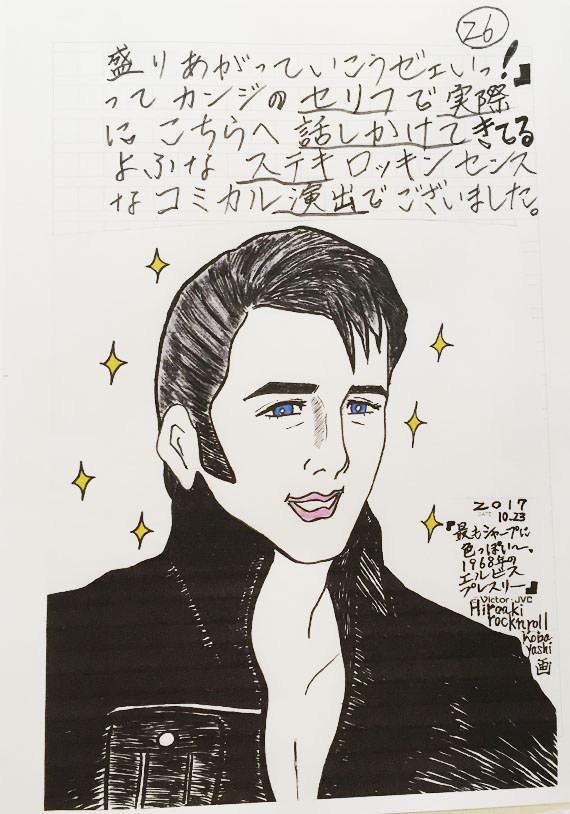 26
盛りあがっていこうゼェいっ!』
ってカンジのセリフで実際
にこちらへ話しかけてきてる
よふなステキロッキンセンス
なコミカル演出でございました。
2017
DATE 10.23
『最もシャープに
色っぽい〜、
1968年の
エルビス
プレスリー』
Victor・JVC
Hiroaki
rocknroll
Koba
yashi
画